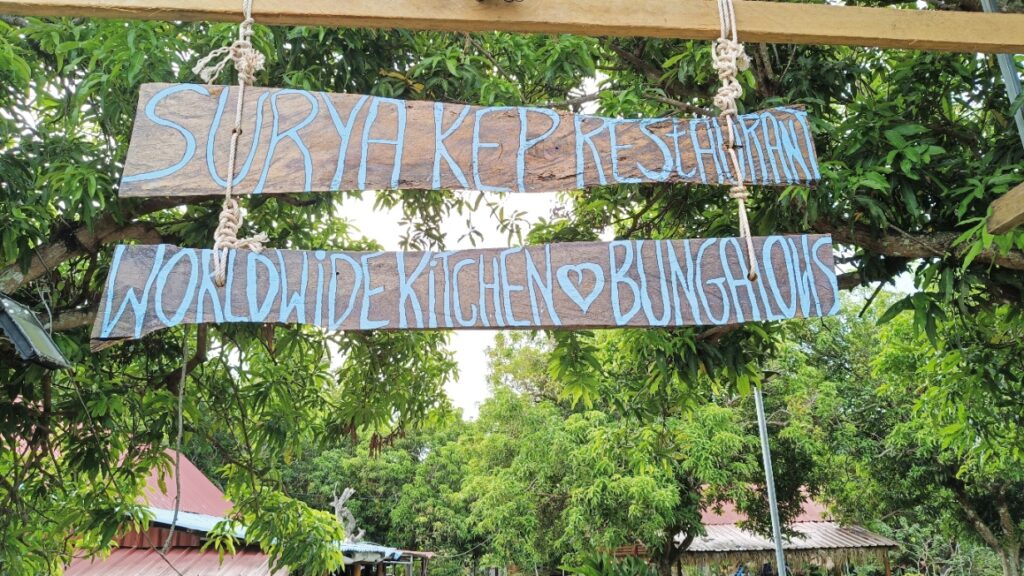 SURYA KEP RESTAURANT
WORLDWIDE KITCHEN ♡ BUNGALOWS